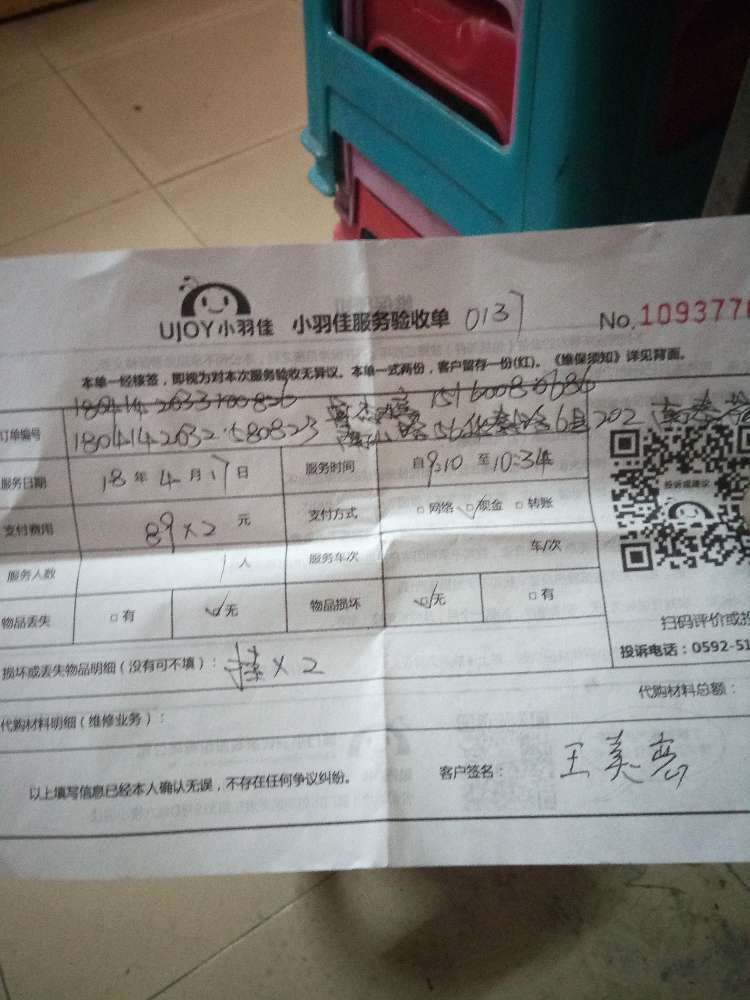 UJOY小羽佳 小羽佳服务验收单 0137 No.1093776
本单一经核签，即视为对本次服务验收无异议。本单一式两份，客户留存一份(红)。《维保须知》详见背面。
订单编号
服务日期 18年4月17日 服务时间 自9:10至10:34
支付费用 89×2元 支付方式 □网络 ☑现金 □转账
投诉或建议
服务人数 1人 服务车次 车/次
物品丢失 □有 ☑无 物品损坏 ☑无 □有
扫码评价或投
投诉电话：0592-51
损坏或丢失物品明细（没有可不填）： ×2
代购材料总额：
代购材料明细（维修业务）：
以上填写信息已经本人确认无误，不存在任何争议纠纷。 客户签名： 王美亮